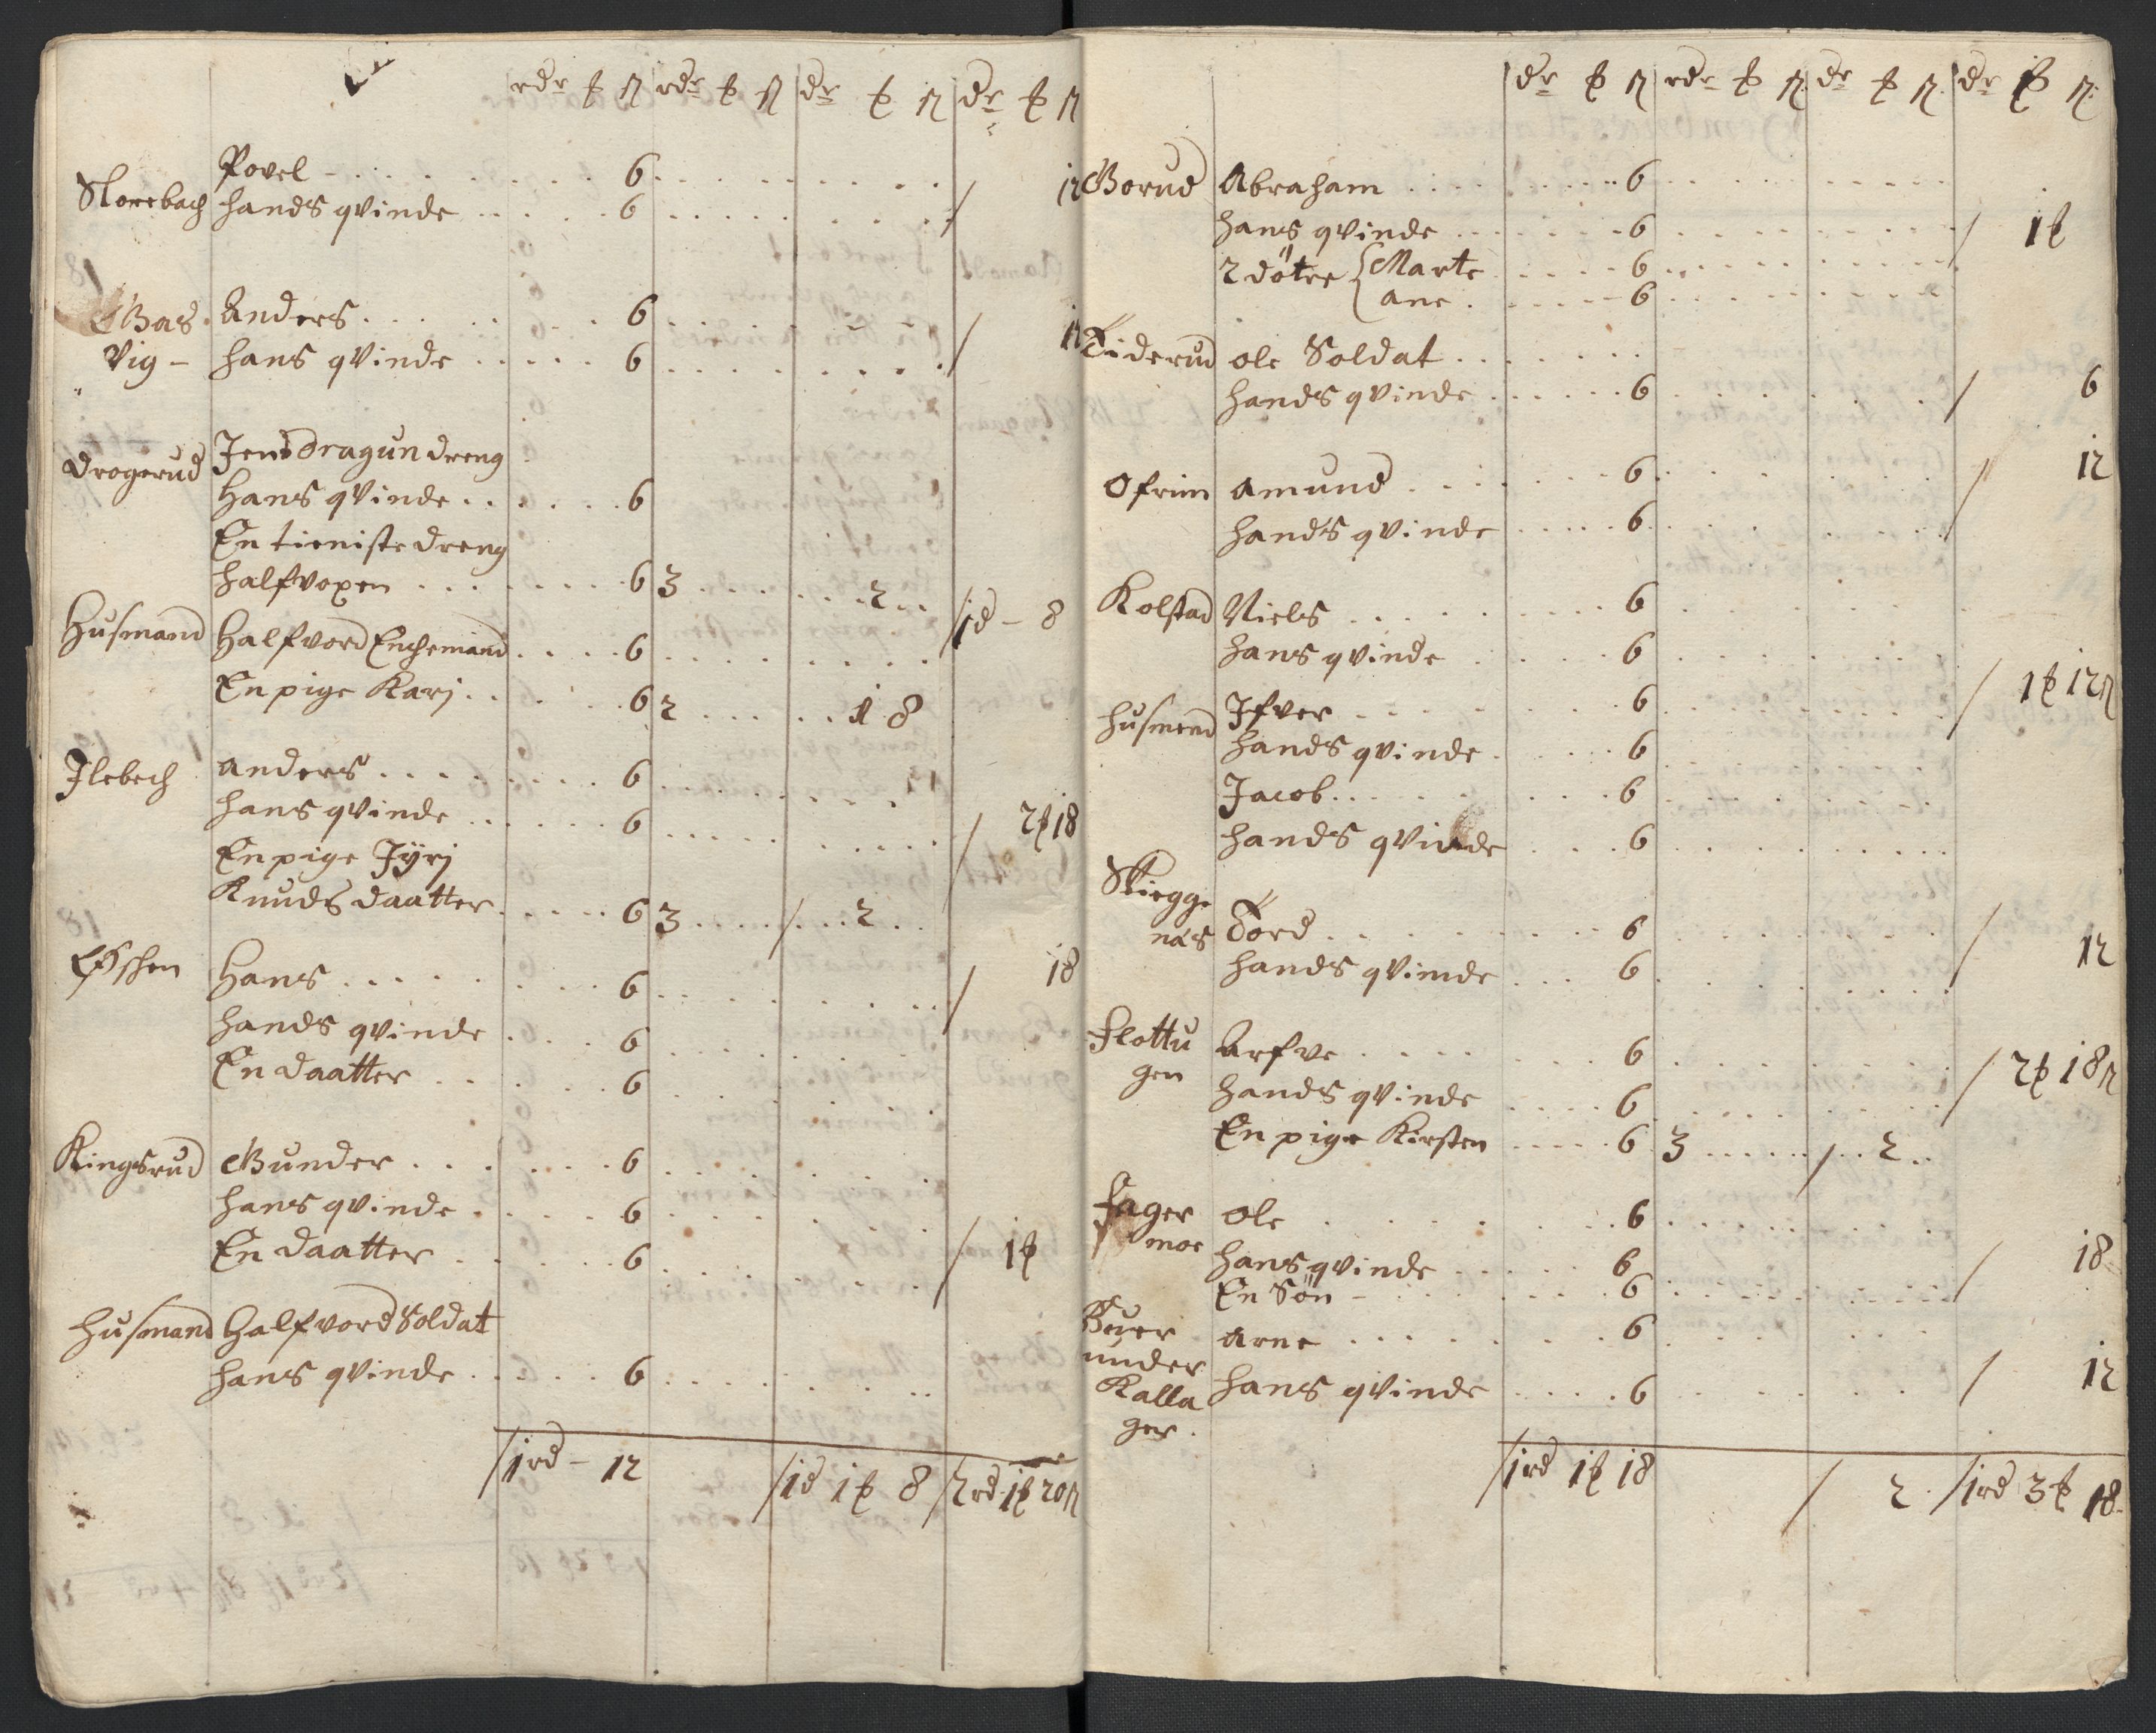 rdr ꝑ ß rdr ꝑ ß dr ꝑ ß dr ꝑ ß
Povel - . . . . 6
Slorebach hands qvinde . . . . 6 . . . . / 12
Bas Anders . . . . 6
Vig - hans qvinde . . . . 6 . . . . / 12
Drogerud Jens dragun dreng
Hans qvinde . . . . 6
En tieniste dreng
halfvoxen . . . . 6 3 . . . . 2 . . /1d - 8
Husmand Halfvord Enchemand . . . . 6
En pige Karj . . . . 6 2 . . . . 1 8
Ilebech anders . . . . 6
hans qvinde . . . . 6 . . . . / 2ꝑ 18
En pige Jÿrj
Knuds daatter . . . . 6 3 . . . . / . . 2 . .
Esschen Hans . . . . 6 . . . . / 18
hands qvinde . . . . 6
En daatter . . . . 6
Kingsrud Gunder . . . . 6
hans qvinde . . . . 6
En daatter . . . . 6 . . . . / 1ꝑ
Husmand Halfvord Soldat
hans qvinde . . . . 6
/1rd - 12 /1d 1ꝑ 8 /2rd 1ꝑ 20ß
dr ꝑ ß rdr ꝑ ß dr ꝑ ß dr ꝑ ß
Borud Abraham . . . . 6
hans qvinde . . . . 6 . . . . / 1ꝑ
2 döttre { Marte . . . . 6
ane . . . . 6
Tiderud ole Soldat . . . .
hands qvinde . . . . 6 . . . . / 6
Ofrim amund . . . . 6 . . . . / 12
hands qvinde . . . . 6
Kolstad Niels . . . . 6
hans qvinde . . . . 6 . . . . / 1ꝑ 12ß
husmend Ifver . . . . 6
hands qvinde . . . . 6
Jacob . . . . 6
hands qvinde . . . . 6
Skiegge
näs Tord . . . . 6 . . . . / 12
hands qvinde . . . . 6
Flottu Arfve . . . . 6
gen hands qvinde . . . . 6 . . . . / 2ꝑ 18ß
En pige Kirsten . . . . 6 3 . . . . / . . 2 . .
Fager ole . . . . 6
moe hans qvinde . . . . 6 . . . . / 18
En Sön - . . . . 6
Buer arne . . . . 6
under
Kalla hans qvinde . . . . 6 . . . . / 12
ger .
/1rd 1ꝑ 18 / 2 . /1rd 3ꝑ 18